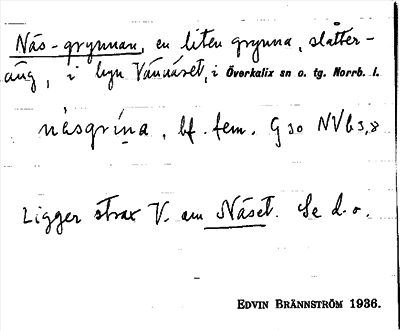 Näs-grynnan, en liten grynna, slåtter-
äng, i byn Vännäset, i Överkalix sn o. tg. Norrb. l.
näsgrina, bf. fem. G 30 NV b 3,8
Ligger strax V. om Näset. Se d.o.
EDVIN BRÄNNSTRÖM 1936.